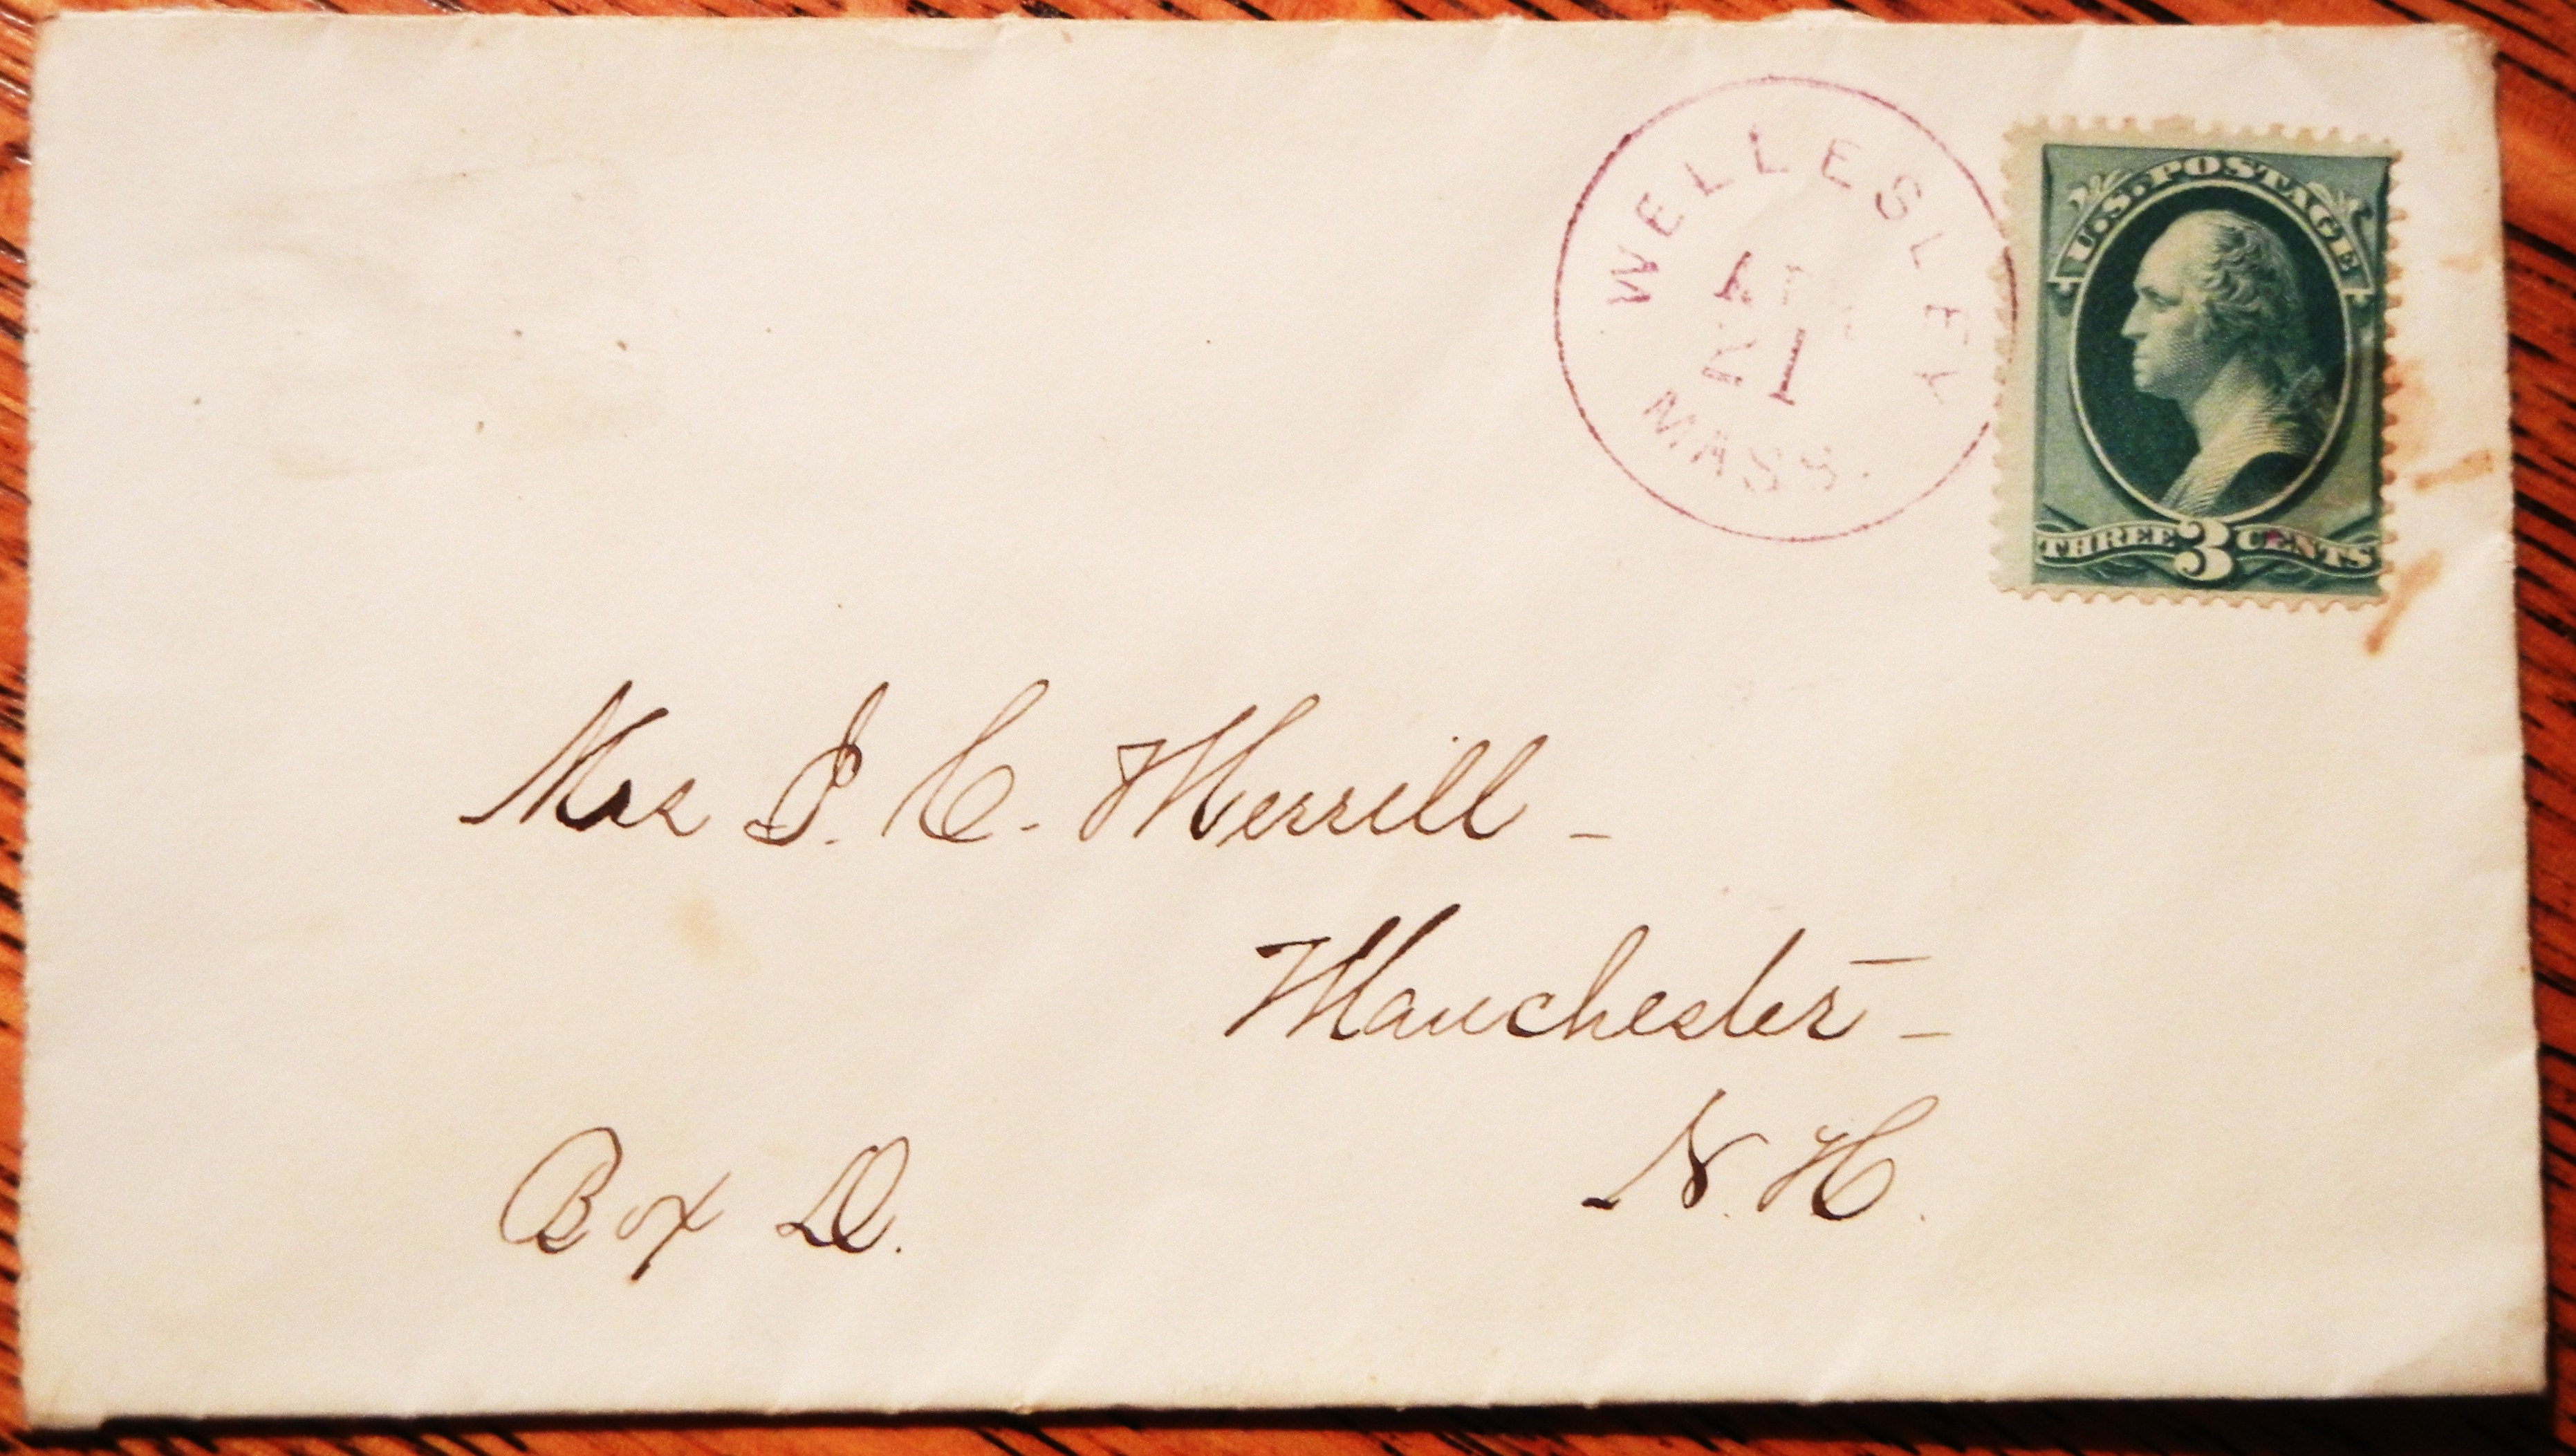 WELLESLEY
APR
21
MASS.
U.S. POSTAGE
THREE 3 CENTS
Mrs C. Merrill -
Manchester -
N. H.
Box D.